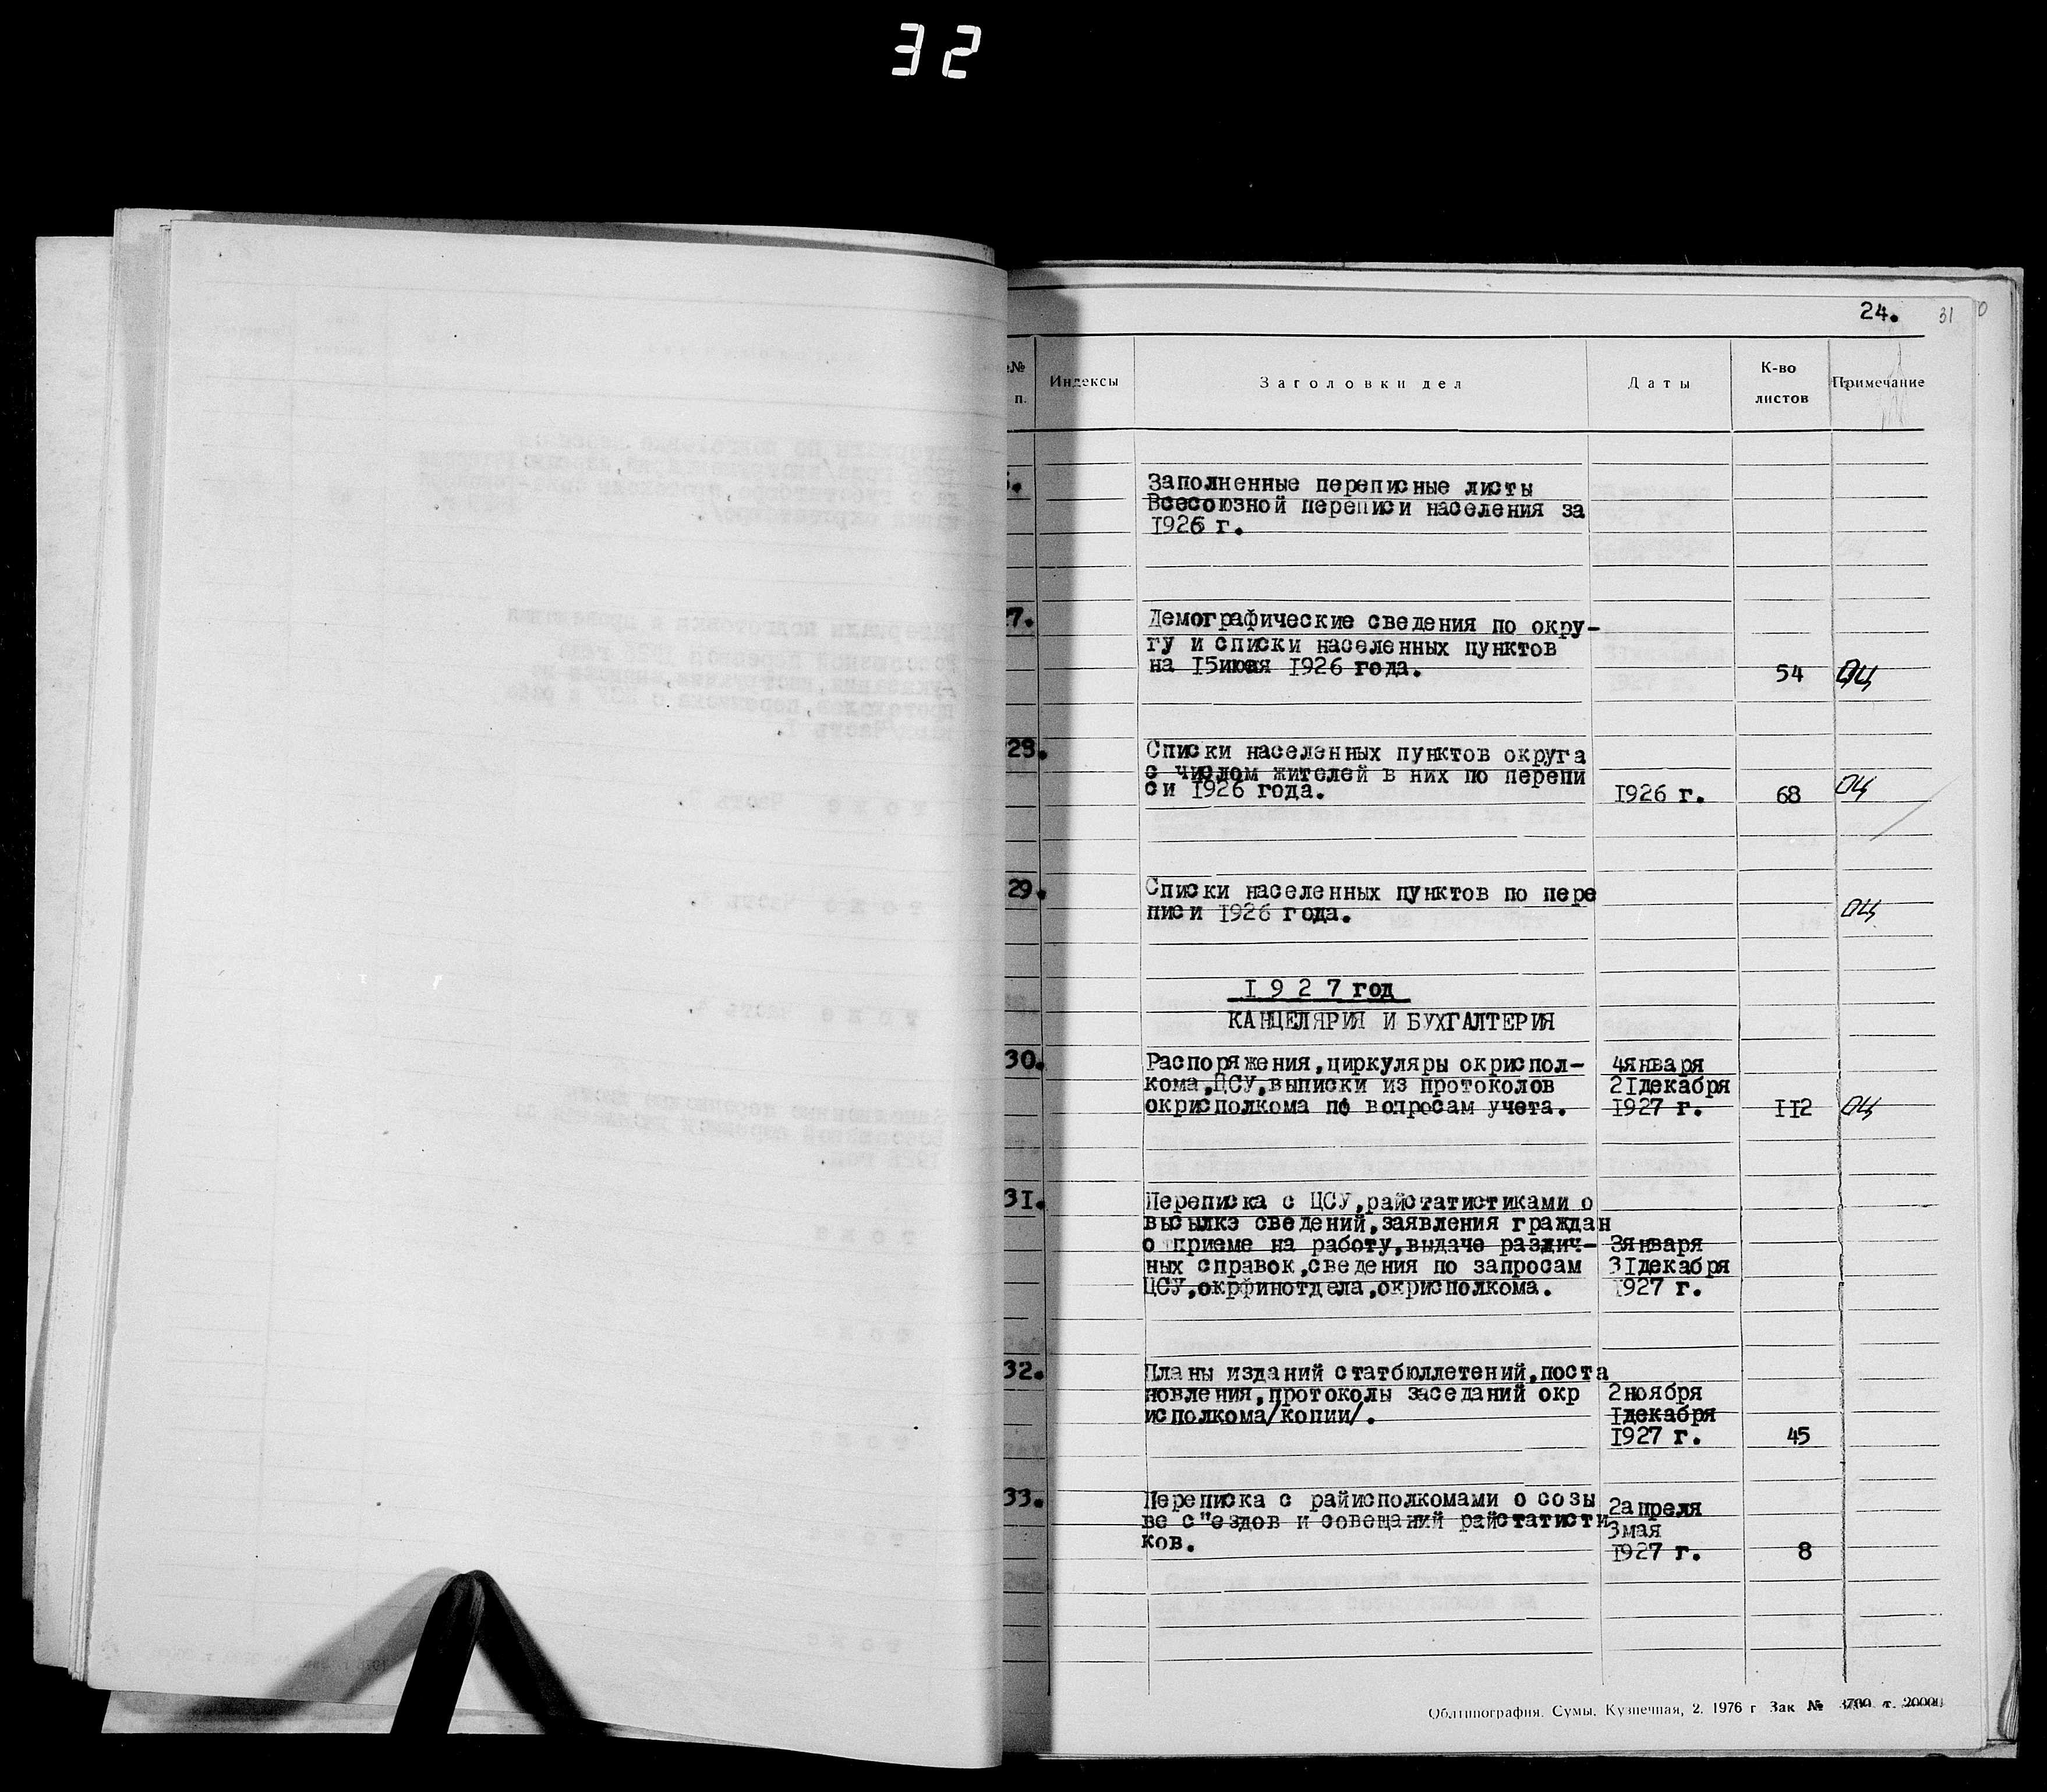 32
24.
31
№ Индексы Заголовки дел Даты К-во листов Примечание
п.
Заполненные переписные листы
Всесоюзной переписи населения за
1926 г.
27. Демографические сведения по окру-
гу и списки населенных пунктов
на 15июня 1926 года. 54 ОЦ
28. Списки населенных пунктов округа
с числом жителей в них по перепи
си 1926 года. 1926 г. 68 ОЦ
29. Списки населенных пунктов по пере
писи 1926 года. ОЦ
1927 год
КАНЦЕЛЯРИЯ И БУХГАЛТЕРИЯ
30. Распоряжения,циркуляры окриспол- 4января
кома,ЦСУ,выписки из протоколов 21декабря
окрисполкома по вопросам учета. 1927 г. 112 ОЦ
31. Переписка с ЦСУ,райстатистиками о
высылке сведений,заявления граждан
о приеме на работу,выдаче различ- 3января
ных справок,сведения по запросам 31декабря
ЦСУ,окрфинотдела,окрисполкома. 1927 г.
32. Планы изданий статбюллетений,поста
новления,протоколы заседаний окр 2ноября
исполкома/копии/. 1декабря
1927 г. 45
33. Переписка с райисполкомами о созы 2апреля
ве с"ездов и совещаний райстатисти 3мая
ков. 1927 г. 8
Облтипография. Сумы, Кузнечная, 2. 1976 г Зак № 3700 т. 20000